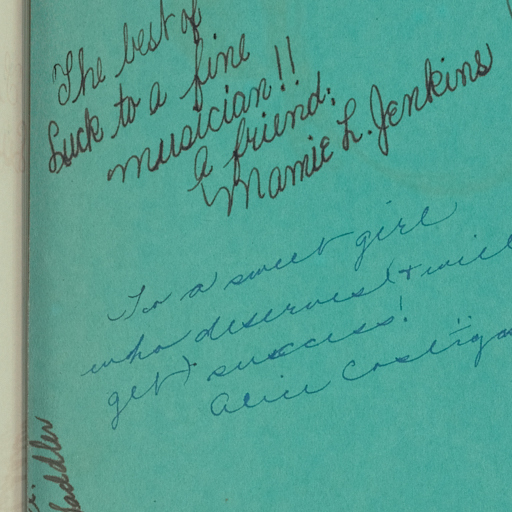 The best of
Luck to a fine
musician!!
A friend:
Mamie L. Jenkins
To a sweet girl
who deserves (+ will
get) success!
Alice
addler